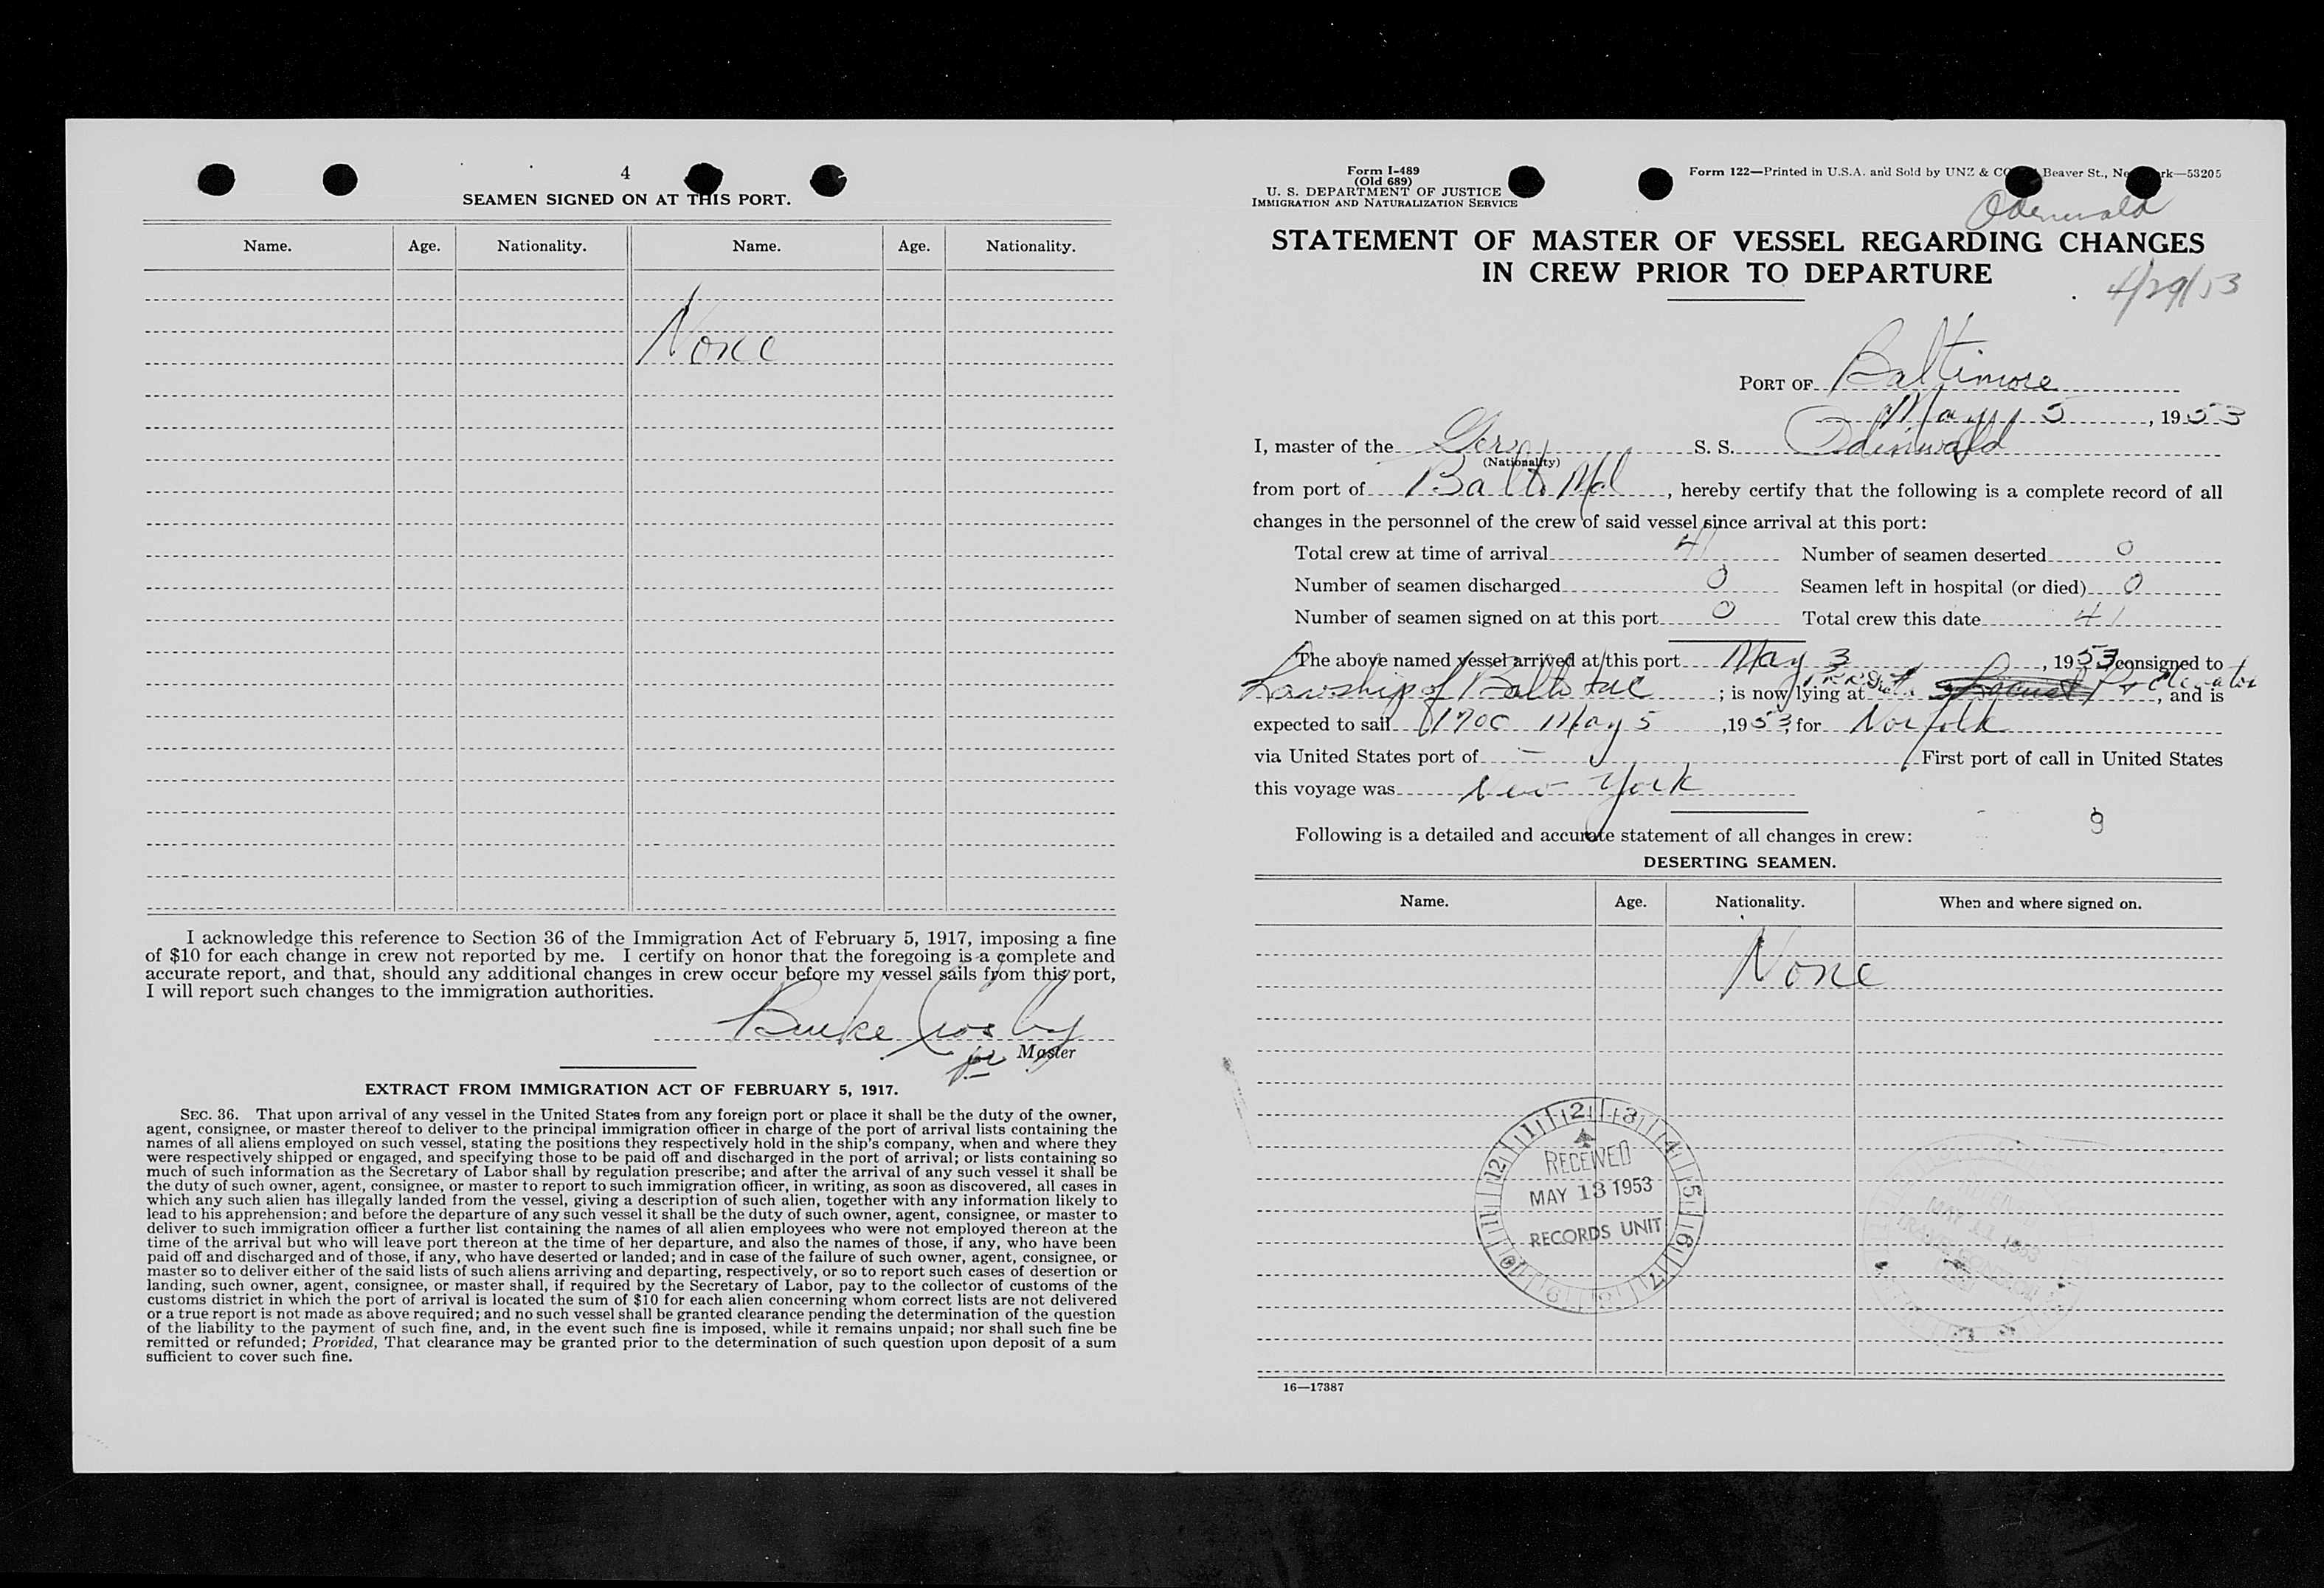 4
SEAMEN SIGNED ON AT THIS PORT.
Name. Age. Nationality. Name. Age. Nationality.
None
I acknowledge this reference to Section 36 of the Immigration Act of February 5, 1917, imposing a fine
of $10 for each change in crew not reported by me. I certify on honor that the foregoing is a complete and
accurate report, and that, should any additional changes in crew occur before my vessel sails from this port,
I will report such changes to the immigration authorities.
Burke Crosby
for Master
EXTRACT FROM IMMIGRATION ACT OF FEBRUARY 5, 1917.
SEC. 36. That upon arrival of any vessel in the United States from any foreign port or place it shall be the duty of the owner,
agent, consignee, or master thereof to deliver to the principal immigration officer in charge of the port of arrival lists containing the
names of all aliens employed on such vessel, stating the positions they respectively hold in the ship's company, when and where they
were respectively shipped or engaged, and specifying those to be paid off and discharged in the port of arrival; or lists containing so
much of such information as the Secretary of Labor shall by regulation prescribe; and after the arrival of any such vessel it shall be
the duty of such owner, agent, consignee, or master to report to such immigration officer, in writing, as soon as discovered, all cases in
which any such alien has illegally landed from the vessel, giving a description of such alien, together with any information likely to
lead to his apprehension; and before the departure of any such vessel it shall be the duty of such owner, agent, consignee, or master to
deliver to such immigration officer a further list containing the names of all alien employees who were not employed thereon at the
time of the arrival but who will leave port thereon at the time of her departure, and also the names of those, if any, who have been
paid off and discharged and of those, if any, who have deserted or landed; and in case of the failure of such owner, agent, consignee, or
master so to deliver either of the said lists of such aliens arriving and departing, respectively, or so to report such cases of desertion or
landing, such owner, agent, consignee, or master shall, if required by the Secretary of Labor, pay to the collector of customs of the
customs district in which the port of arrival is located the sum of $10 for each alien concerning whom correct lists are not delivered
or a true report is not made as above required; and no such vessel shall be granted clearance pending the determination of the question
of the liability to the payment of such fine, and, in the event such fine is imposed, while it remains unpaid; nor shall such fine be
remitted or refunded; Provided, That clearance may be granted prior to the determination of such question upon deposit of a sum
sufficient to cover such fine.
Form I-489
(Old 689)
U. S. DEPARTMENT OF JUSTICE
IMMIGRATION AND NATURALIZATION SERVICE
Form 122—Printed in U.S.A. and Sold by UNZ & CO Beaver St., Ne rk—53205
Odenwald
STATEMENT OF MASTER OF VESSEL REGARDING CHANGES
IN CREW PRIOR TO DEPARTURE
4/29/53
PORT OF Baltimore
May 5, 1953
I, master of the Ger S. S. Odinwald
(Nationality)
from port of Balto Md, hereby certify that the following is a complete record of all
changes in the personnel of the crew of said vessel since arrival at this port:
Total crew at time of arrival 41 Number of seamen deserted 0
Number of seamen discharged 0 Seamen left in hospital (or died) 0
Number of seamen signed on at this port 0 Total crew this date 41
The above named vessel arrived at this port May 3, 1953 consigned to
of Balto Inc; is now lying at Locust Pt Elevator, and is
expected to sail 1700 May 5, 1953, for Norfolk
via United States port of — First port of call in United States
this voyage was New York
9
Following is a detailed and accurate statement of all changes in crew:
DESERTING SEAMEN.
Name. Age. Nationality. When and where signed on.
None
RECEIVED
MAY 13 1953
RECORDS UNIT
16—17387